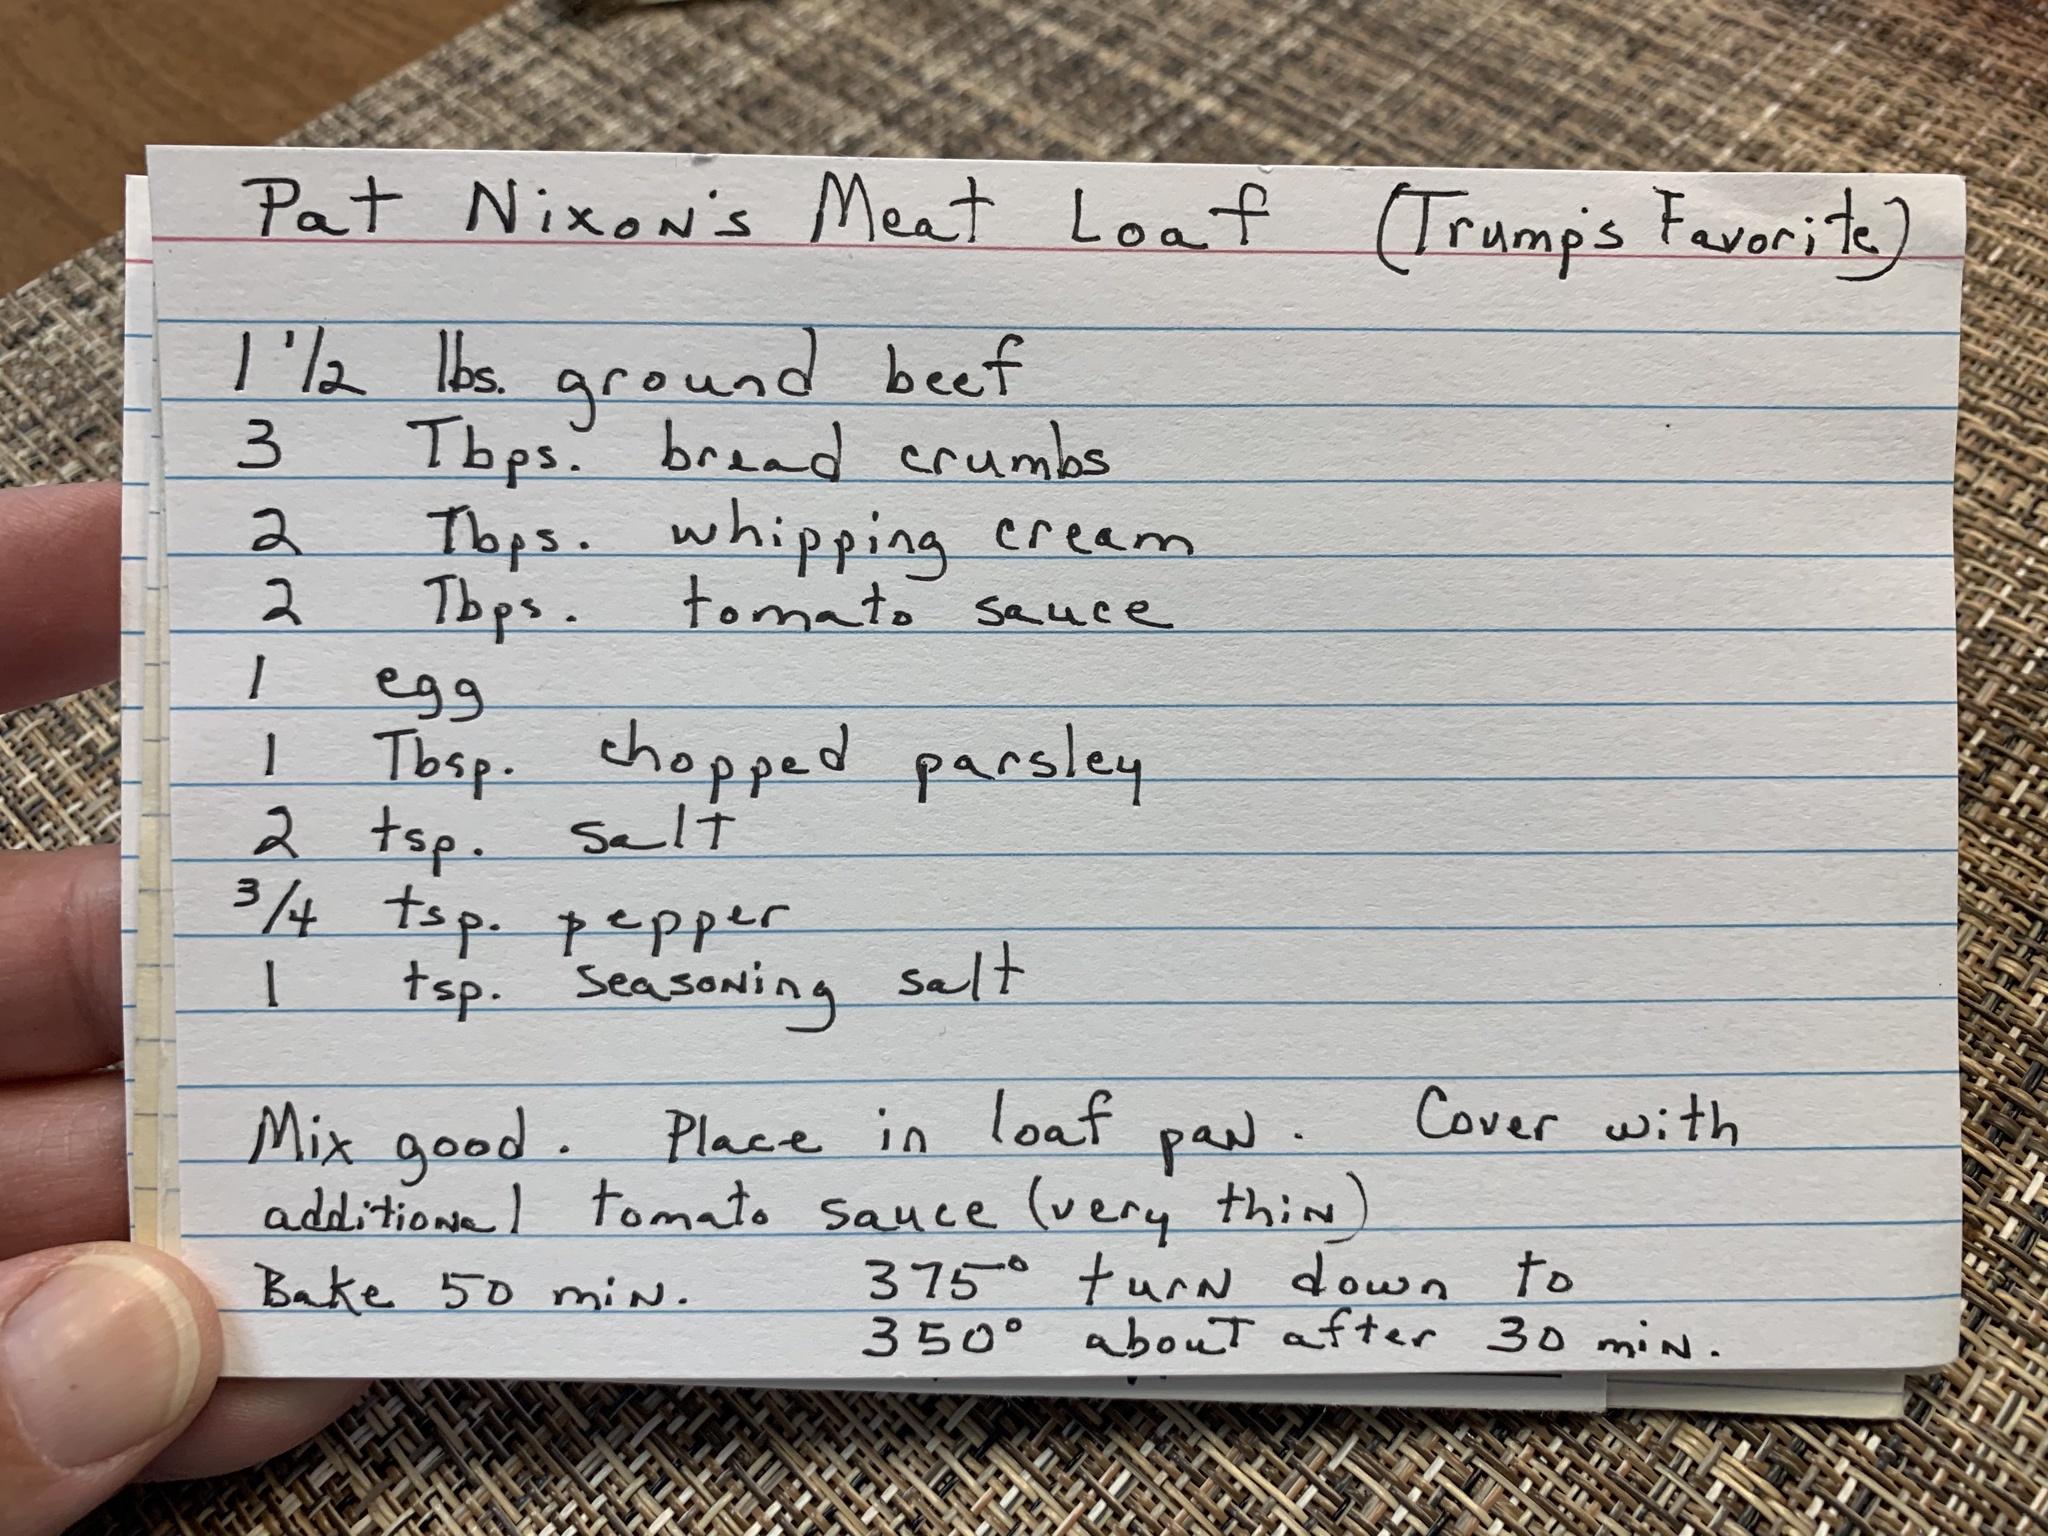 Pat Nixon's Meat Loaf (Trump's Favorite)
1 1/2 lbs. ground beef
3 Tbps. bread crumbs
2 Tbps. whipping cream
2 Tbps. tomato sauce
1 egg
1 Tbsp. chopped parsley
2 tsp. salt
3/4 tsp. pepper
1 tsp. seasoning salt
Mix good. Place in loaf pan. Cover with
additional tomato sauce (very thin)
Bake 50 min. 375° turn down to
350° about after 30 min.